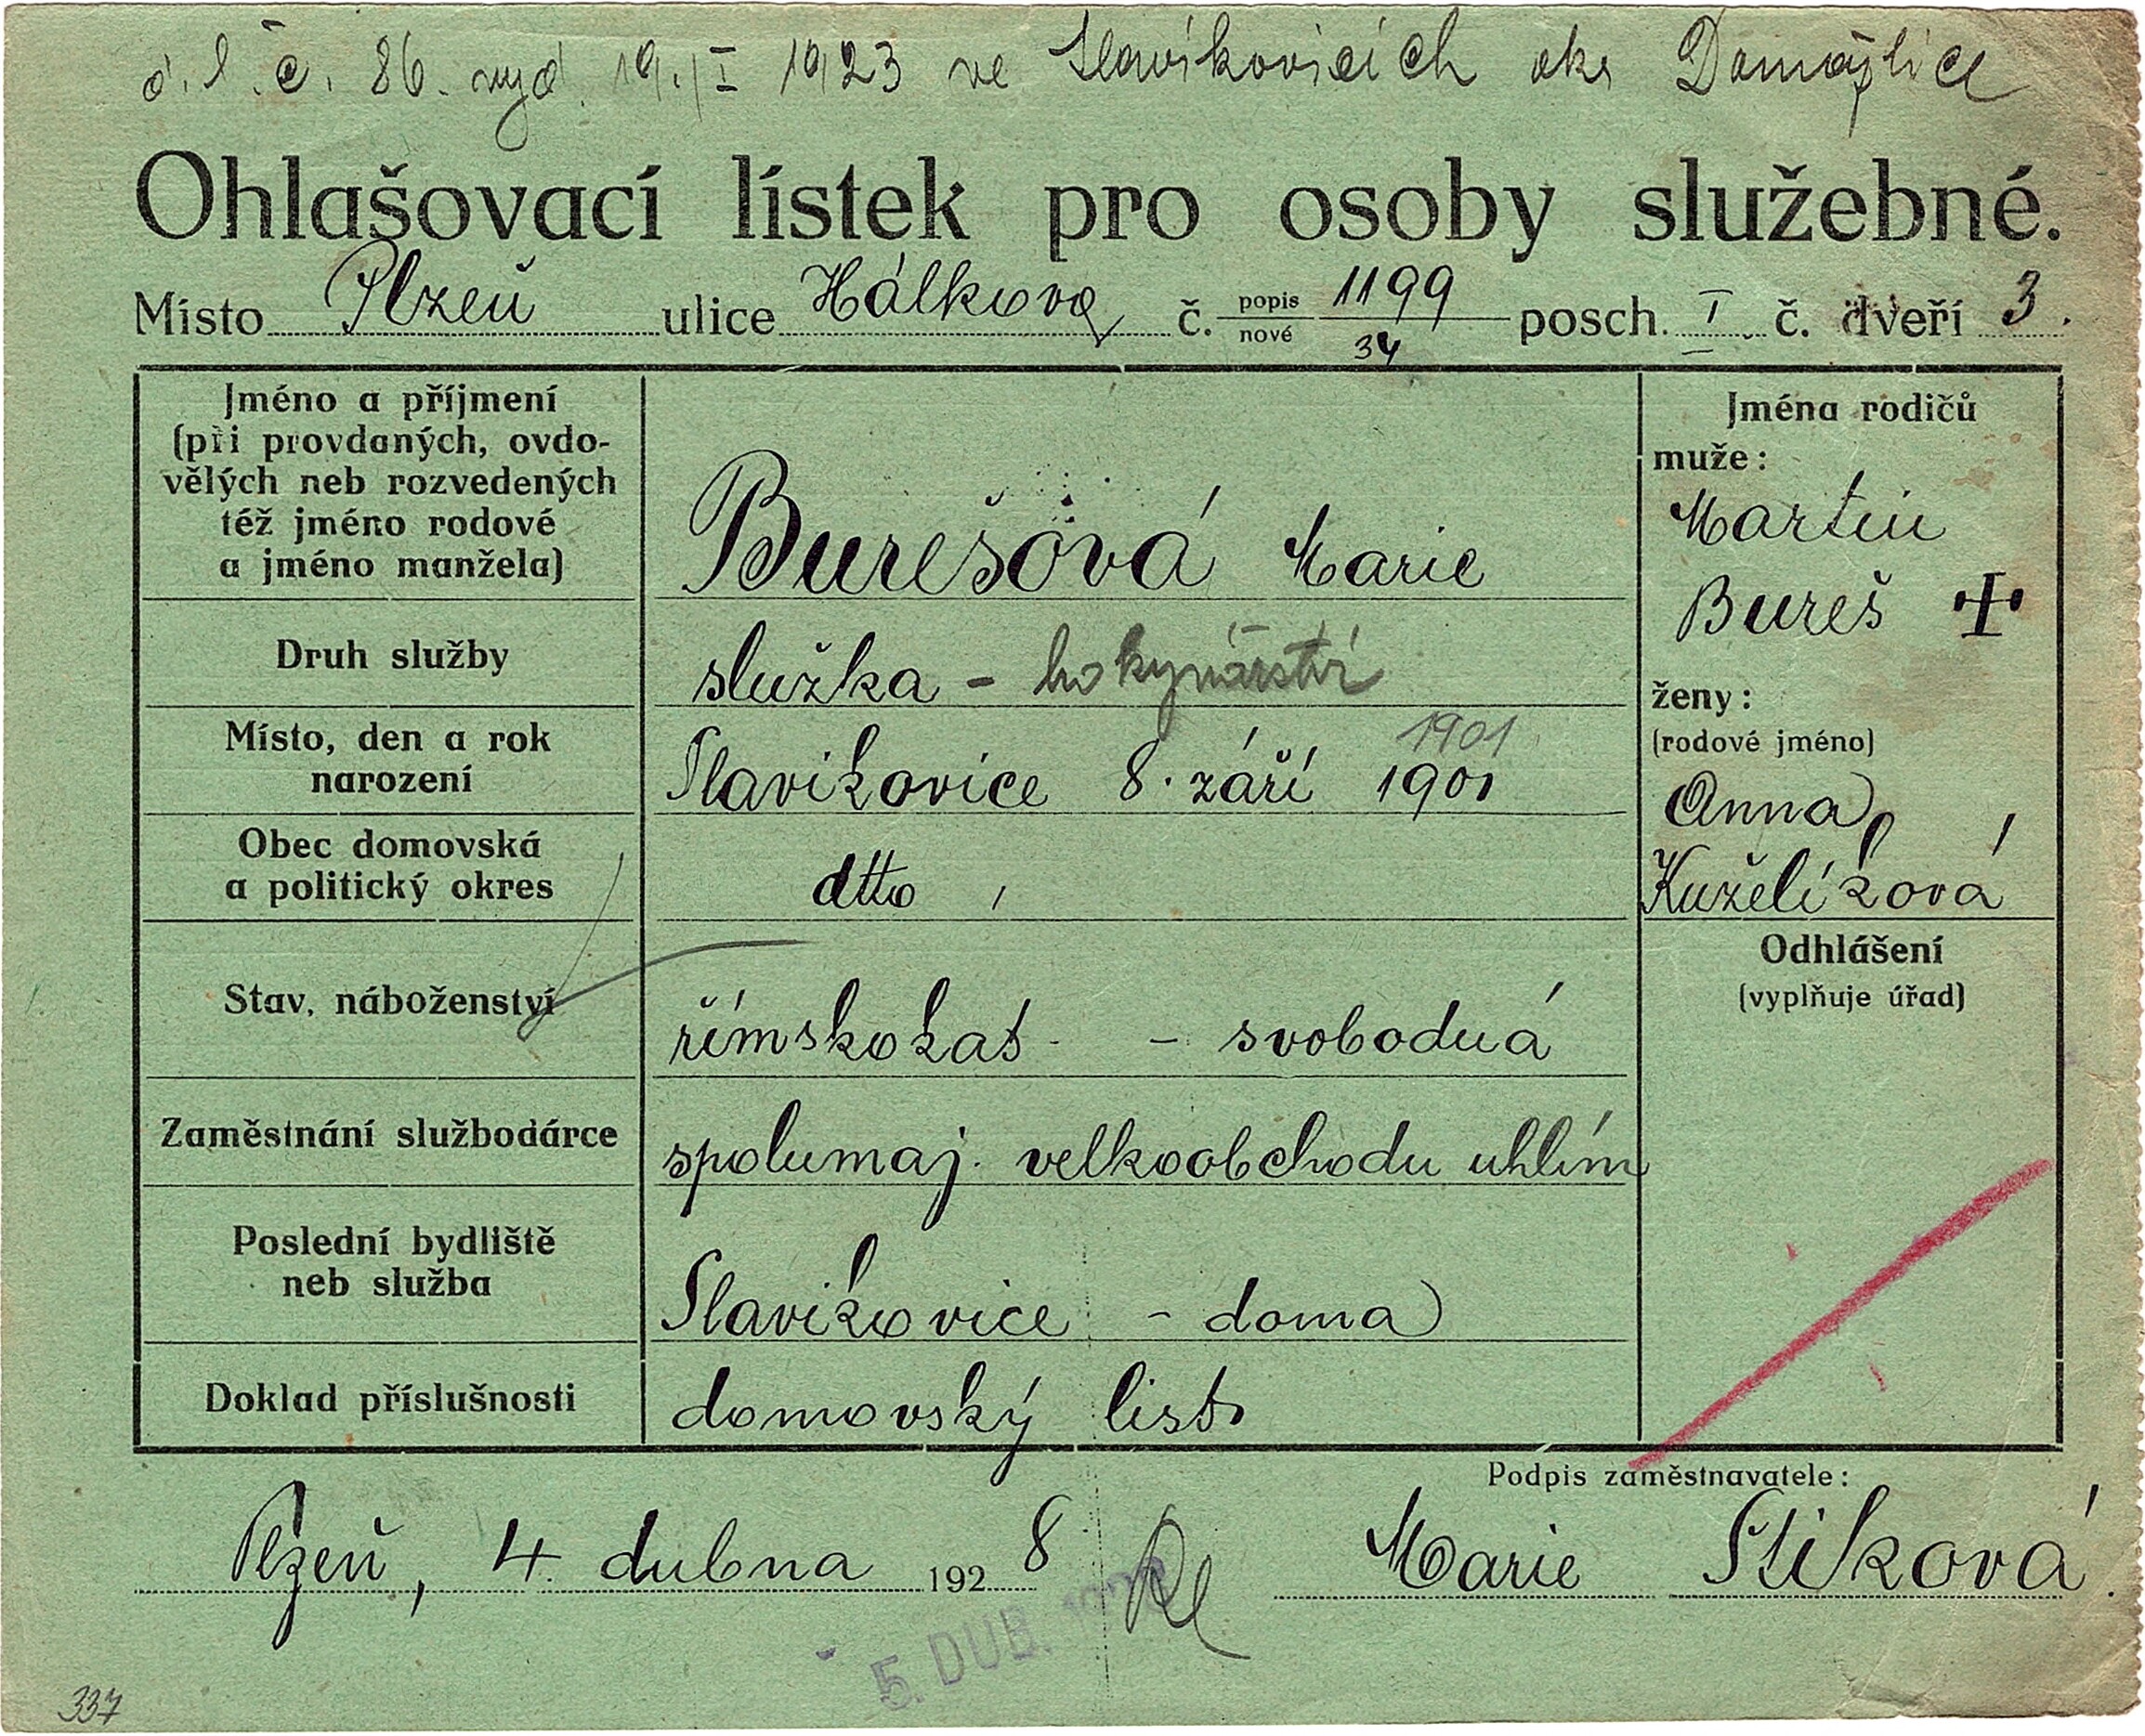 d. l. č. 86. vyd. 19./I 1923 ve Slavíkovicích okr Domažlice
Ohlašovací lístek pro osoby služebné.
Místo Plzeň ulice Hálkova č. popis 1199 posch. I. č. dveří 3.
nové 34
Jméno a příjmení
(při provdaných, ovdo-
vělých neb rozvedených
též jméno rodové
a jméno manžela)
Burešová Marie
Jména rodičů
muže:
Martin
Bureš +
Druh služby
služka - hokynářství
ženy:
(rodové jméno)
Anna
Kuželíková
Místo, den a rok
narození
1901
Slavikovice 8. září 1901
Obec domovská
a politický okres
dtto
Odhlášení
(vyplňuje úřad)
Stav, náboženství
římskokat. - svobodná
Zaměstnání službodárce
spolumaj. velkoobchodu uhlím
Poslední bydliště
neb služba
Slavikovice - doma
Doklad příslušnosti
domovský list
Podpis zaměstnavatele:
Plzeň, 4. dubna 1928
Marie Stiková.
5. DUB. 1928
337